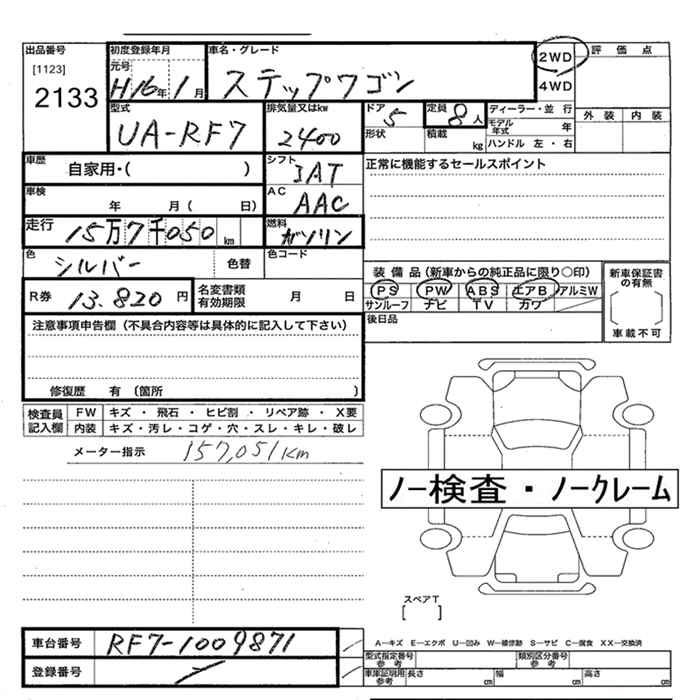 出品番号
[1123]
2133
初度登録年月
元号
H16年1月
車名・グレード
ステップワゴン
2WD
4WD
評価点
外装 内装
型式
UA-RF7
排気量又はkw
2400
ドア
5
形状
定員
8人
積載
kg
ディーラー・並行
モデル年式 年
ハンドル 左・右
車歴
自家用・( )
シフト
IAT
正常に機能するセールスポイント
車検
年 月( 日)
AC
AAC
走行
15万7千050km
燃料
ガソリン
色
シルバー
色替
色コード
R券 13.820円
名変書類有効期限 月 日
装備品(新車からの純正品に限り○印)
PS PW ABS エアB アルミW
サンルーフ ナビ TV カワ
新車保証書の有無
車載不可
後日品
注意事項申告欄(不具合内容等は具体的に記入して下さい)
修復歴 有(箇所 )
検査員記入欄
FW キズ・飛石・ヒビ割・リペア跡・X要
内装 キズ・汚レ・コゲ・穴・スレ・キレ・破レ
メーター指示 157,051km
ノー検査・ノークレーム
スペアT
[ ]
車台番号 RF7-1009871
登録番号
A-キズ E-エクボ U-凹み W-補修跡 S-サビ C-腐食 XX-交換済
型式指定番号 参考
類別区分番号 参考
車庫証明用 参考 長さ cm 幅 cm 高さ cm